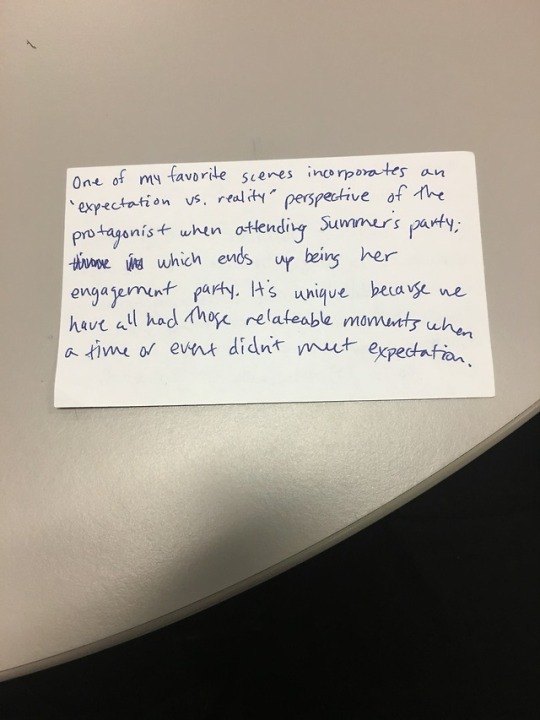 One of my favorite scenes incorporates an
"expectation vs. reality" perspective of the
protagonist when attending Summer's party;
which ends up being her
engagement party. It's unique because we
have all had those relateable moments when
a time or event didn't meet expectation.